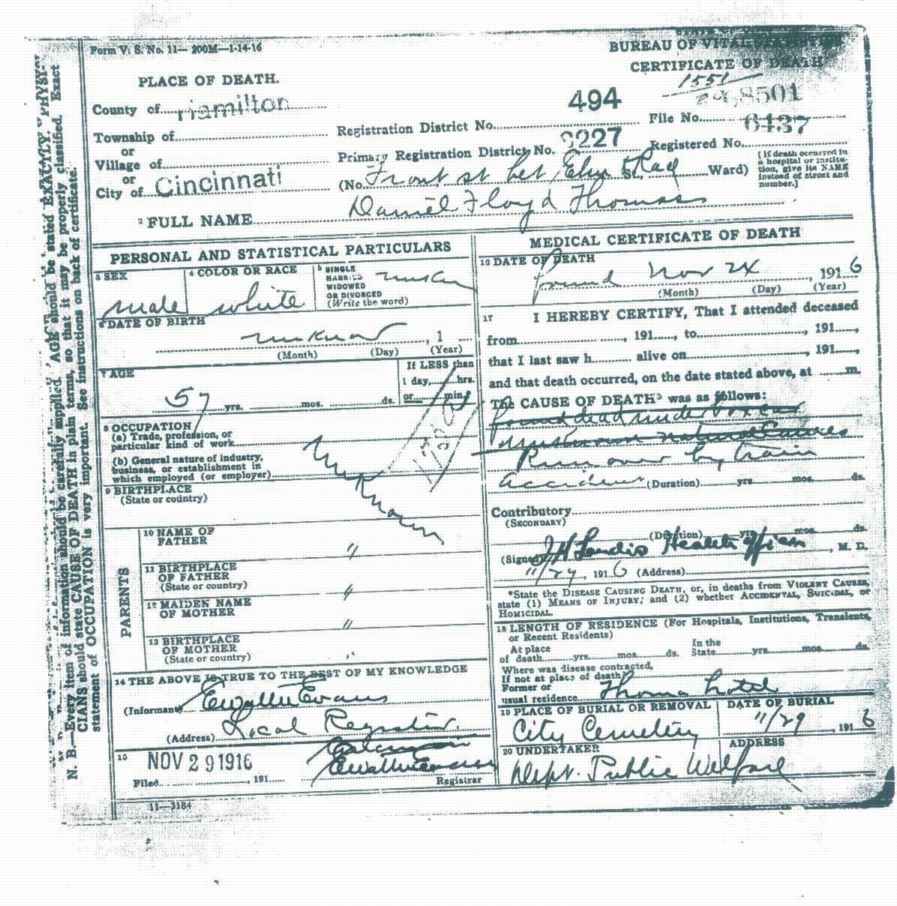 Form V. S. No. 11— 200M—1-14-16
BUREAU OF VITAL
CERTIFICATE OF DEATH
PLACE OF DEATH.
1551
County of Hamilton
494
File No. 8501
Township of
Registration District No.
6437
or
8227
Registered No.
Village of
Primary Registration District No.
or
City of Cincinnati
(No. Front st bet Elm St. Ward)
(If death occurred in a hospital or institution, give its NAME instead of street and number.)
2 FULL NAME Daniel Floyd Thomas
PERSONAL AND STATISTICAL PARTICULARS
3 SEX
male
4 COLOR OR RACE
white
5 SINGLE
MARRIED
WIDOWED
OR DIVORCED
(Write the word)
6 DATE OF BIRTH
, 1
(Month) (Day) (Year)
7 AGE
57 yrs. mos. ds.
If LESS than
1 day, hrs.
or min.?
8 OCCUPATION
(a) Trade, profession, or
particular kind of work
(b) General nature of industry,
business, or establishment in
which employed (or employer)
Unknown
9 BIRTHPLACE
(State or country)
PARENTS
10 NAME OF
FATHER
"
11 BIRTHPLACE
OF FATHER
(State or country)
"
12 MAIDEN NAME
OF MOTHER
"
13 BIRTHPLACE
OF MOTHER
(State or country)
"
14 THE ABOVE IS TRUE TO THE BEST OF MY KNOWLEDGE
(Informant) Evans
(Address) Local Registrar
15
NOV 29 1916
Filed , 191
Registrar
11—3184
MEDICAL CERTIFICATE OF DEATH
16 DATE OF DEATH
found Nov 24 1916
(Month) (Day) (Year)
17 I HEREBY CERTIFY, That I attended deceased
from , 191 , to , 191 ,
that I last saw h alive on , 191 ,
and that death occurred, on the date stated above, at m.
The CAUSE OF DEATH* was as follows:
found dead under box car
unknown natural Causes
Run over by train
accident (Duration) yrs. mos. ds.
Contributory
(SECONDARY)
(Duration) yrs. mos. ds.
(Signed) J H Landis Health Officer, M. D.
11/29, 1916 (Address)
*State the DISEASE CAUSING DEATH, or, in deaths from VIOLENT CAUSES,
state (1) MEANS OF INJURY; and (2) whether ACCIDENTAL, SUICIDAL, or
HOMICIDAL.
18 LENGTH OF RESIDENCE (For Hospitals, Institutions, Transients,
or Recent Residents)
At place
of death yrs. mos. ds.
In the
State yrs. mos. ds.
Where was disease contracted,
If not at place of death?
Former or
usual residence Thoma Hotel
19 PLACE OF BURIAL OR REMOVAL
City Cemetery
DATE OF BURIAL
11/29, 1916
20 UNDERTAKER
Dept. Public Welfare
ADDRESS
N. B.—Every item of information should be carefully supplied. AGE should be stated EXACTLY. PHYSI-
CIANS should state CAUSE OF DEATH in plain terms, so that it may be properly classified. Exact
statement of OCCUPATION is very important. See instructions on back of certificate.